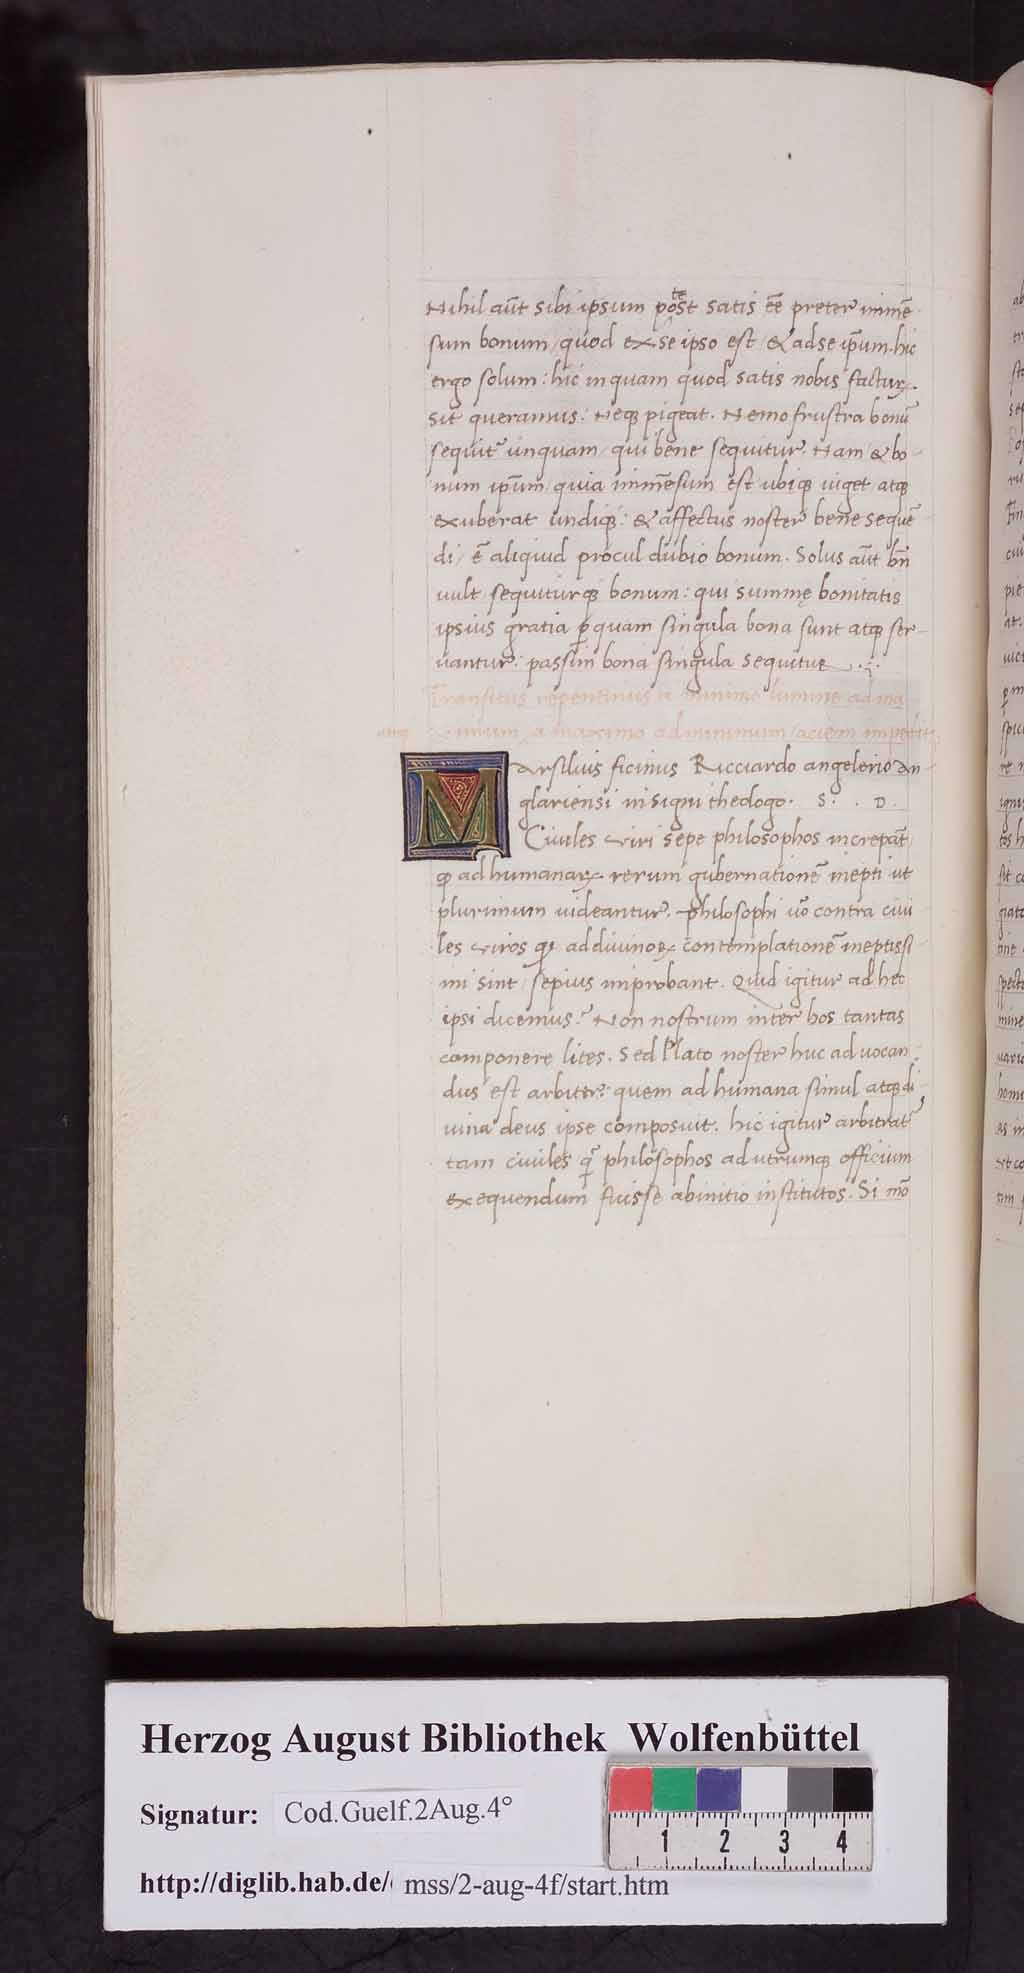 Nihil aūt sibi ipsum potest satis ēē preter immē
sum bonum / quod ex se ipso est & ad se ip̄um. hic
ergo solum: hic inquam quod satis nobis facturꝝ
sit queramus: Neqꝫ pigeat. Nemo frustra bonū
sequit᷑ unquam / qui bene sequitur. Nam & bo
num ip̄um / quia immēsum est ubiqꝫ uiget atqꝫ
exuberat undiqꝫ: & affectus noster bene sequē
di / ē aliquid procul dubio bonum. Solus aūt bn̄
uult sequiturqꝫ bonum: qui summę bonitatis
ipsius gratia ꝑquam singula bona sunt atqꝫ ser-
uantur: passim bona singula sequitur
Transitus repentinus a minimo lumine ad ma
ximum / a maximo ad minimum / aciem impedit
Marsilius ficinus Ricciardo angelerio an
glariensi insigni theologo. S. . D.
Ciuiles uiri sepe philosophos increpāt
ꝙ ad humanarꝝ rerum gubernationē inepti ut
plurimum uideantur. philosophi uō contra ciui
les uiros ꝙ ad diuinoꝝ contemplationē ineptissi
mi sint / sepius improbant. Quid igitur ad hec
ipsi dicemus? Non nostrum inter hos tantas
componere lites. Sed Plato noster huc aduocan
dus est arbiter: quem ad humana simul atqꝫ di
uina deus ipse composuit. hic igitur arbitrat᷑
tam ciuiles q̄ philosophos ad utrumqꝫ officium
exequendum fuisse ab initio institutos. Si mō
Herzog August Bibliothek Wolfenbüttel
Signatur: Cod.Guelf.2Aug.4°
1 2 3 4
http://diglib.hab.de/ mss/2-aug-4f/start.htm